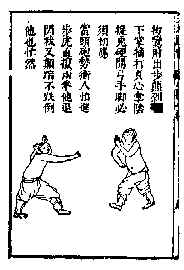 拗鸞肘出步顛剁搬
下掌摘打其心拿陰
捉兔硬開弓手脚必
須相應
當頭砲勢衝人怕進
步虎直攛兩拳他退
閃我又顛踹不跌倒
他也忙然